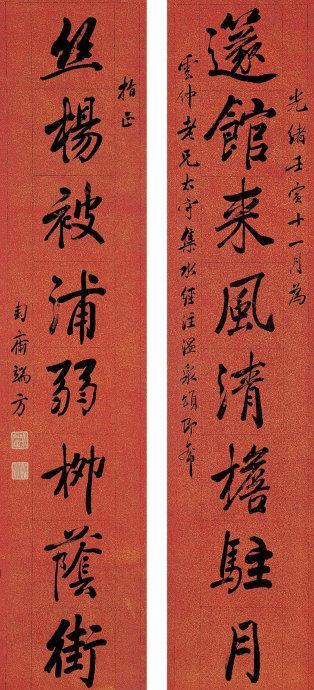 光緒壬寅十一月為
邃館来風清檐駐月
雲仲老兄太守集水經注溫泉頌即希
指正
丝楊被浦弱柳蔭街
匋齋端方